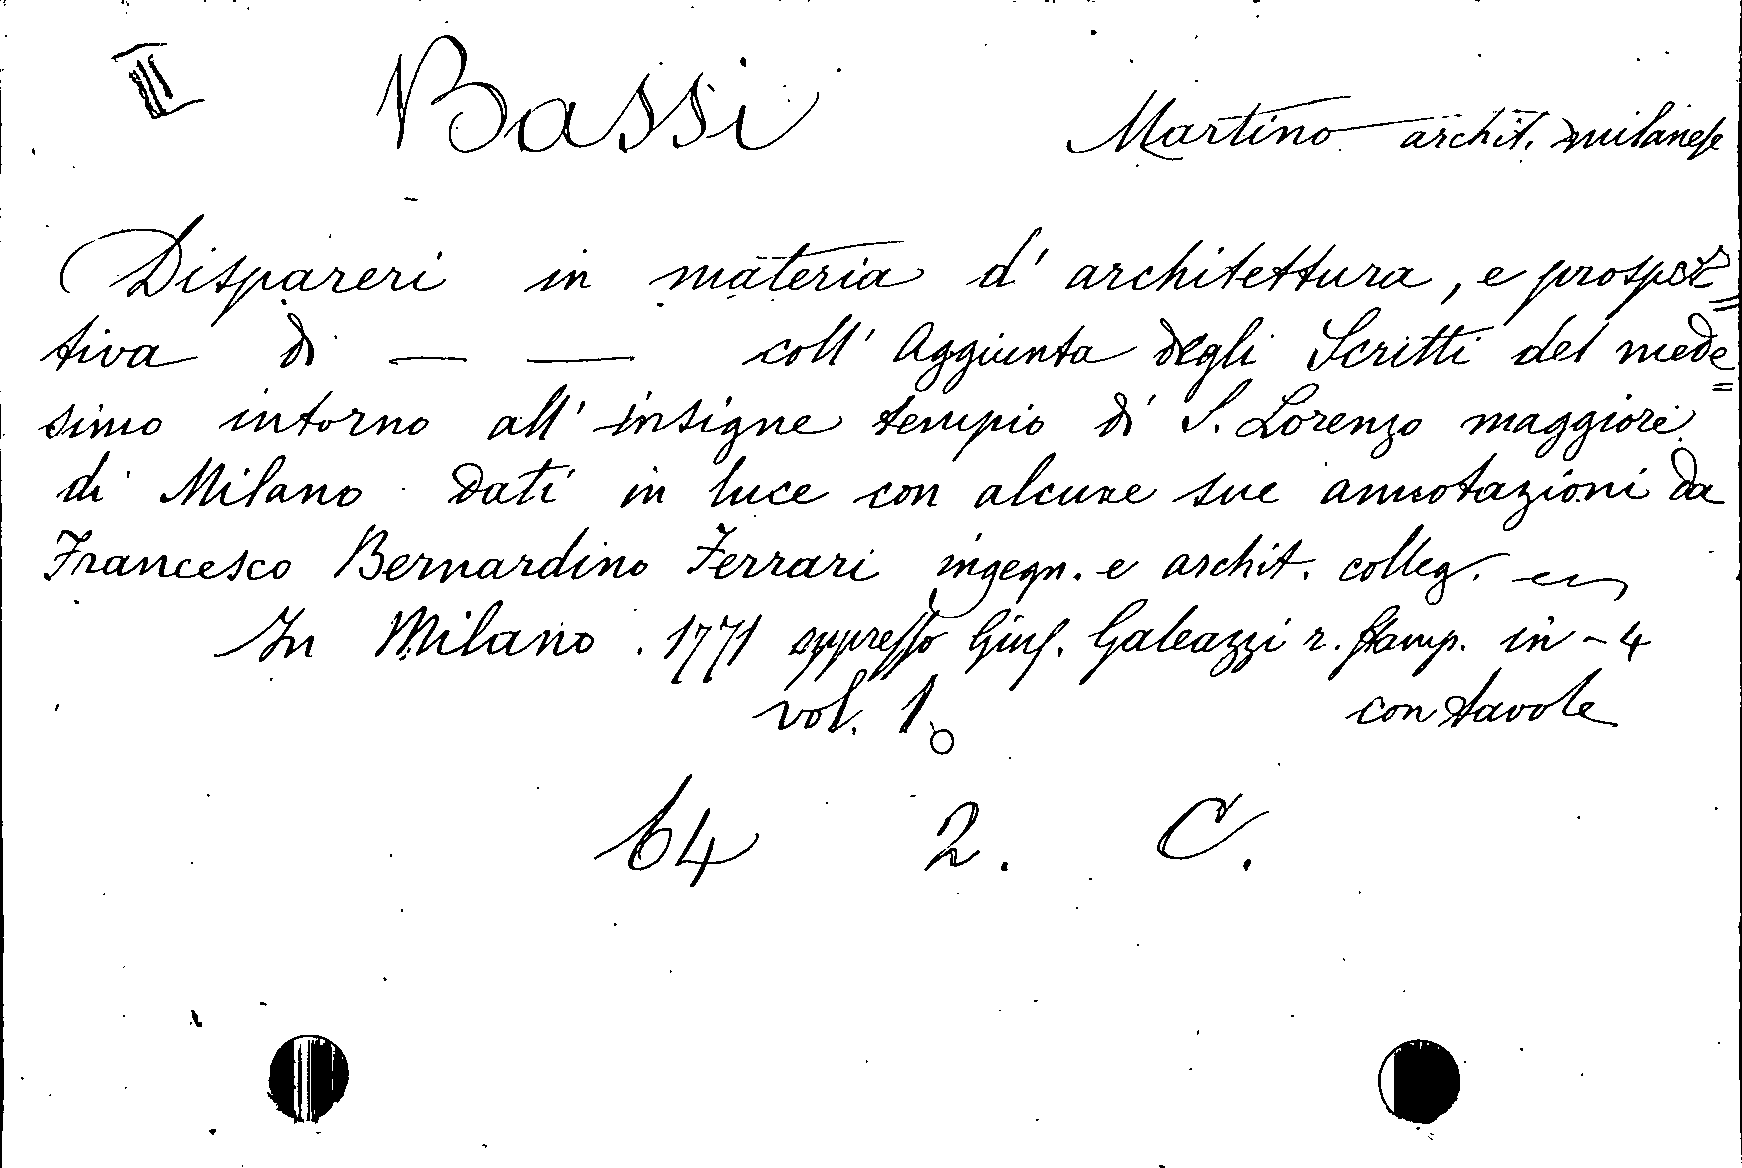 III Bassi Martino archit. milanese
Dispareri in materia d' architettura, e prospet=
tiva di — — coll' Aggiunta degli Scritti del mede=
simo intorno all' insigne tempio di S. Lorenzo maggiore
di Milano dati in luce con alcune sue annotazioni da
Francesco Bernardino Ferrari ingegn. e archit. colleg.
In Milano. 1771 appresso Gius. Galeazzi r. stamp. in-4
vol. 1. con tavole
64 2. C.